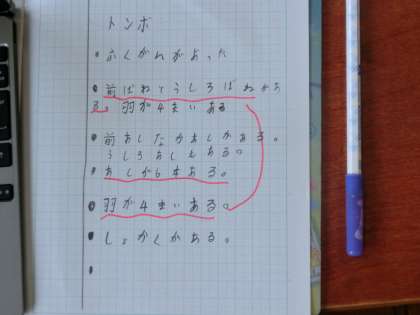 トンボ
・ふくがんがあった
・前ばねとうしろばねがあ
る。羽が4まいある
・前あしなかあしがある。
うしろあしもある。
・あしが6本ある。
・羽が4まいある。
・しょっかくがある。